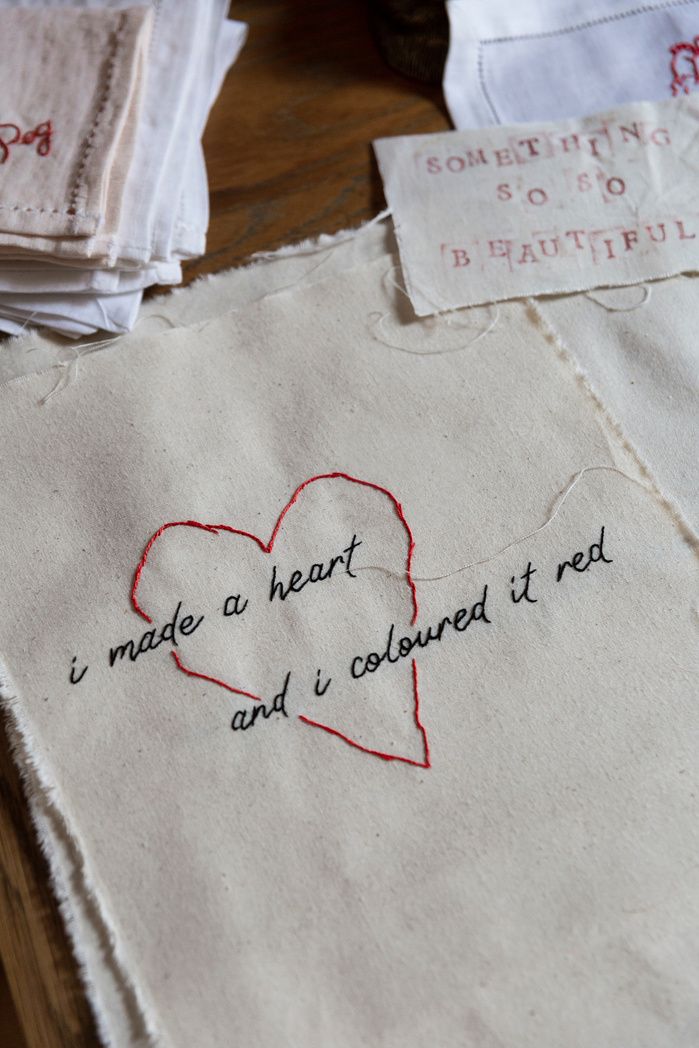 SOMETHING
SO SO
BEAUTIFUL
i made a heart
and i coloured it red